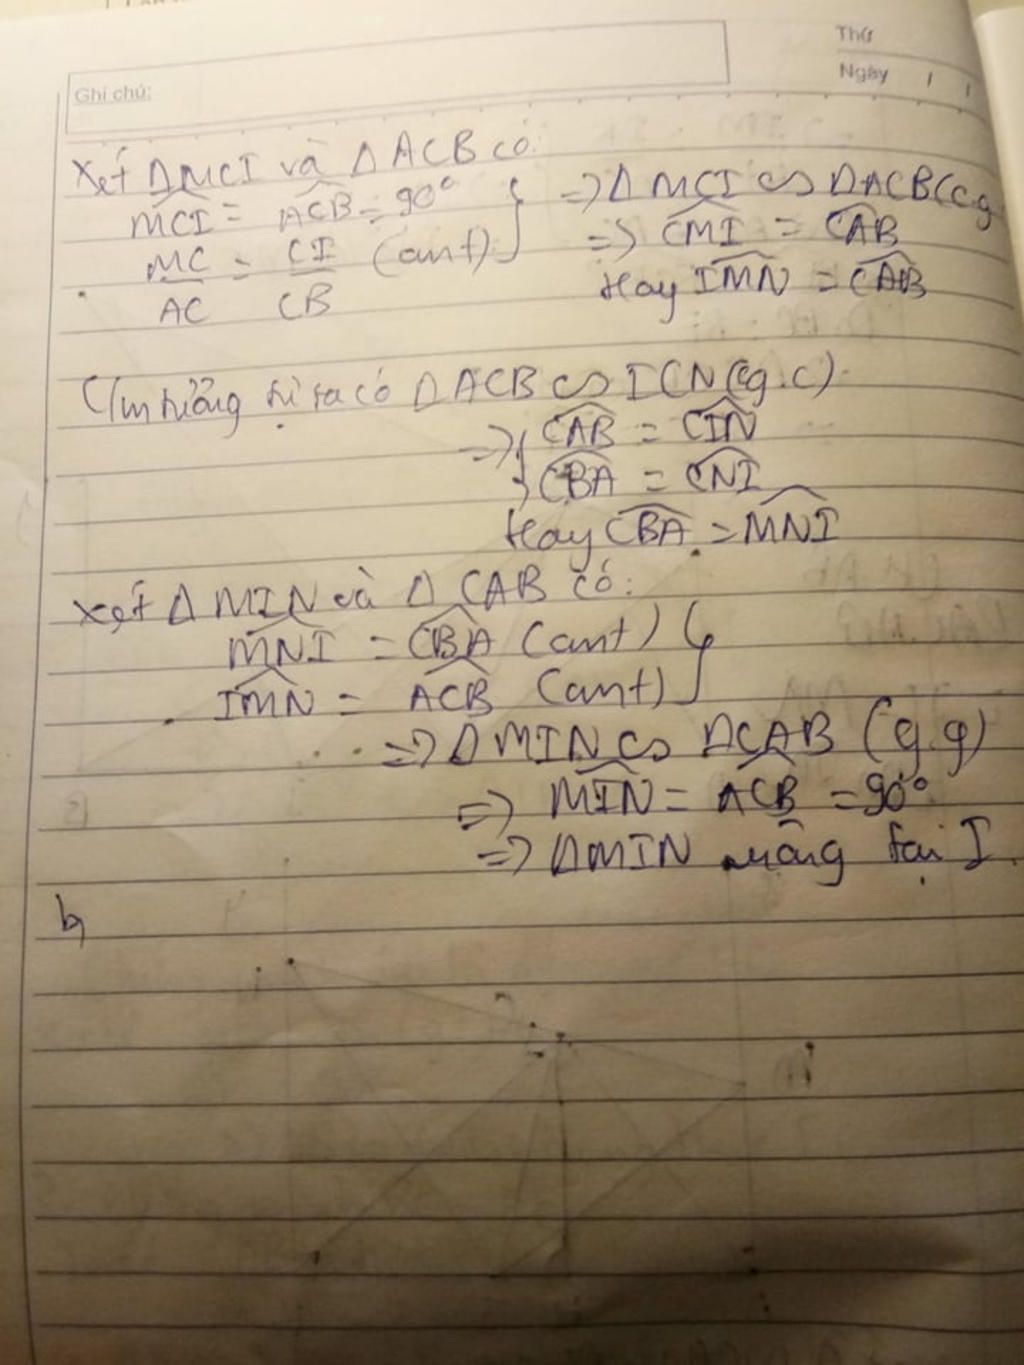 Thứ
Ghi chú:
Ngày / /
Xét ΔMCI và ΔACB có:
MCI = ACB = 90° } => ΔMCI ∽ ΔACB (c.g
MC/AC = CI/CB (cmt) => CMI = CAB
Hay IMN = CAB
C/m tương tự ta có ΔACB ∽ ICN (cg.c)
=> { CAB = CIN
CBA = CNI
Hay CBA = MNI
Xét ΔMIN và ΔCAB có:
MNI = CBA (cmt) }
IMN = ACB (cmt)
=> ΔMIN ∽ ΔCAB (g.g)
=> MIN = ACB = 90°
=> ΔMIN vuông tại I
b,